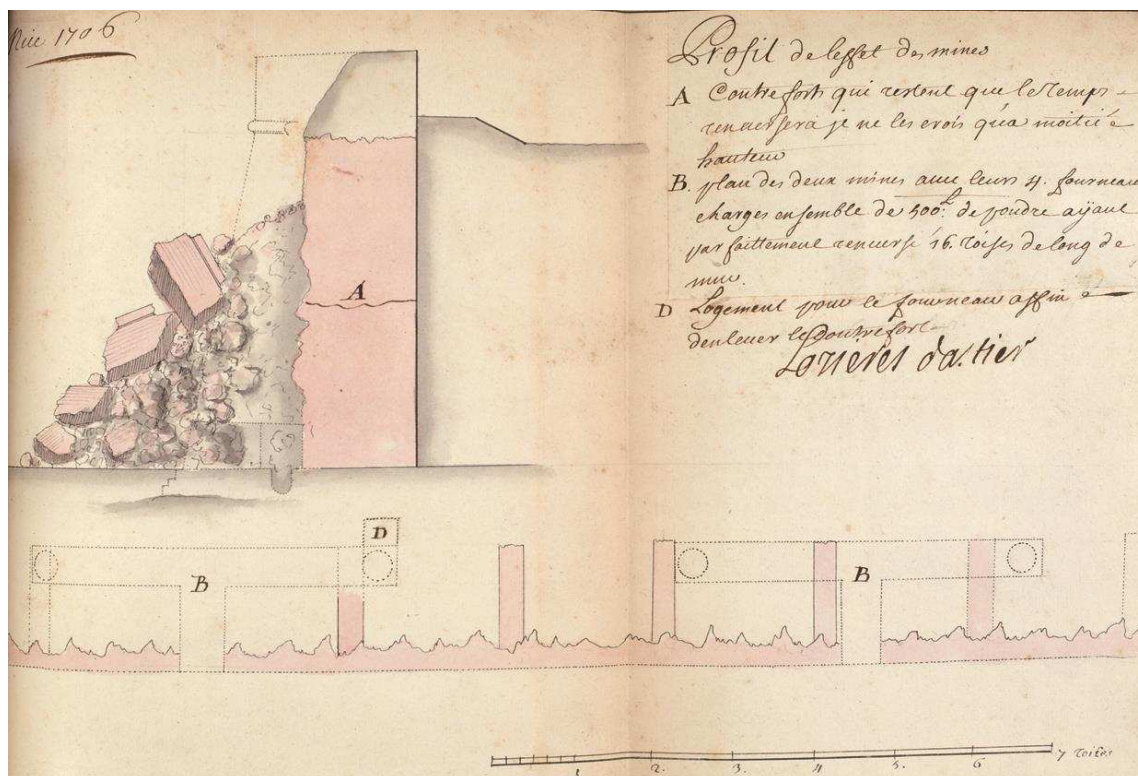 Nice 1706
Profil de l'effet des mines
A Contreforts qui restent que le temps
renversera je ne les crois qu'a moitié
hauteur
B. plan des deux mines avec leurs 4. fourneau
charges ensemble de 500.L de poudre aÿant
parfaittement renversé 16. toises de long de
mur.
D Logement pour le fourneau affin
denlever le Contrefort
A
D
B
B
1 2. 3. 4 5. 6 7 toises